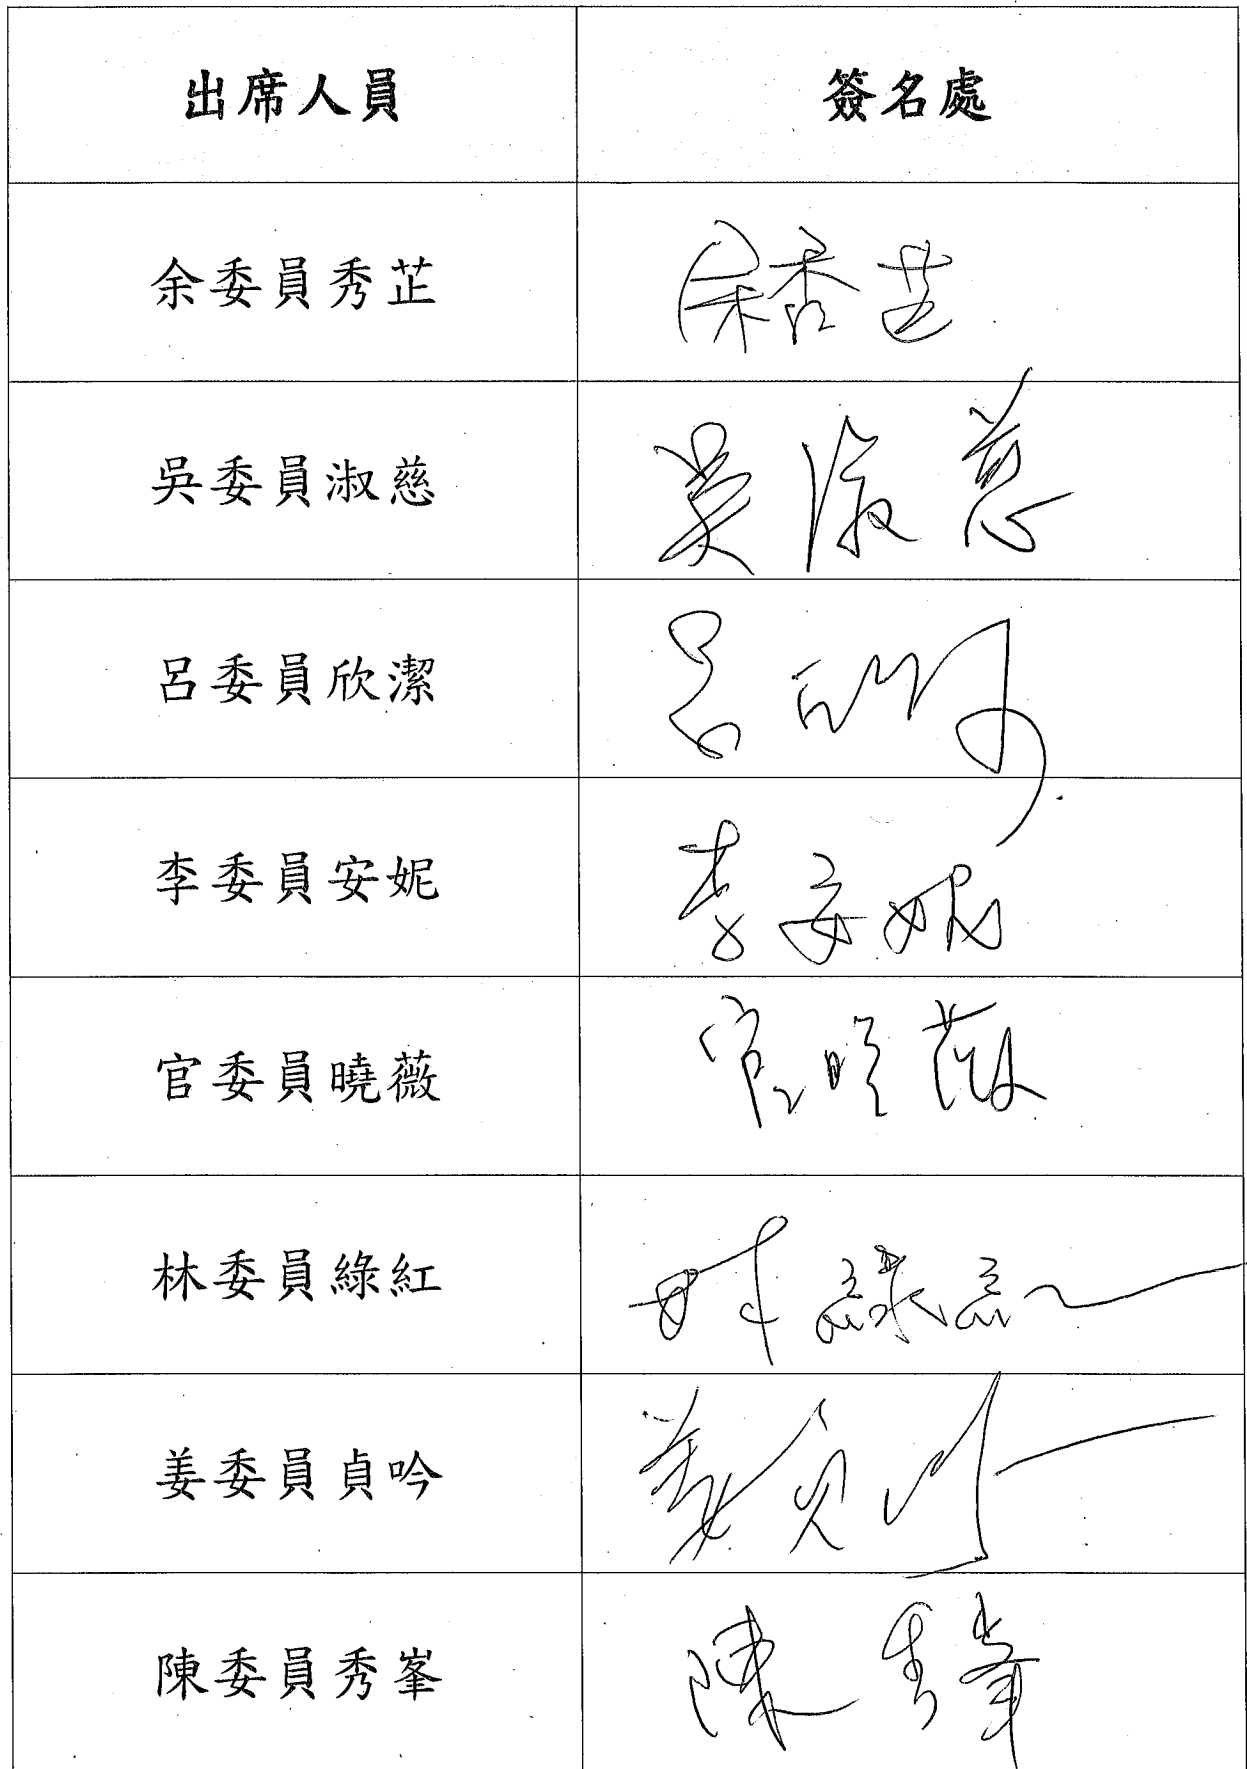 出席人員 簽名處
余委員秀芷 余秀芷
吳委員淑慈 吳淑慈
呂委員欣潔 呂欣潔
李委員安妮 李安妮
官委員曉薇 官曉薇
林委員綠紅 林綠紅
姜委員貞吟 姜貞吟
陳委員秀峯 陳秀峯